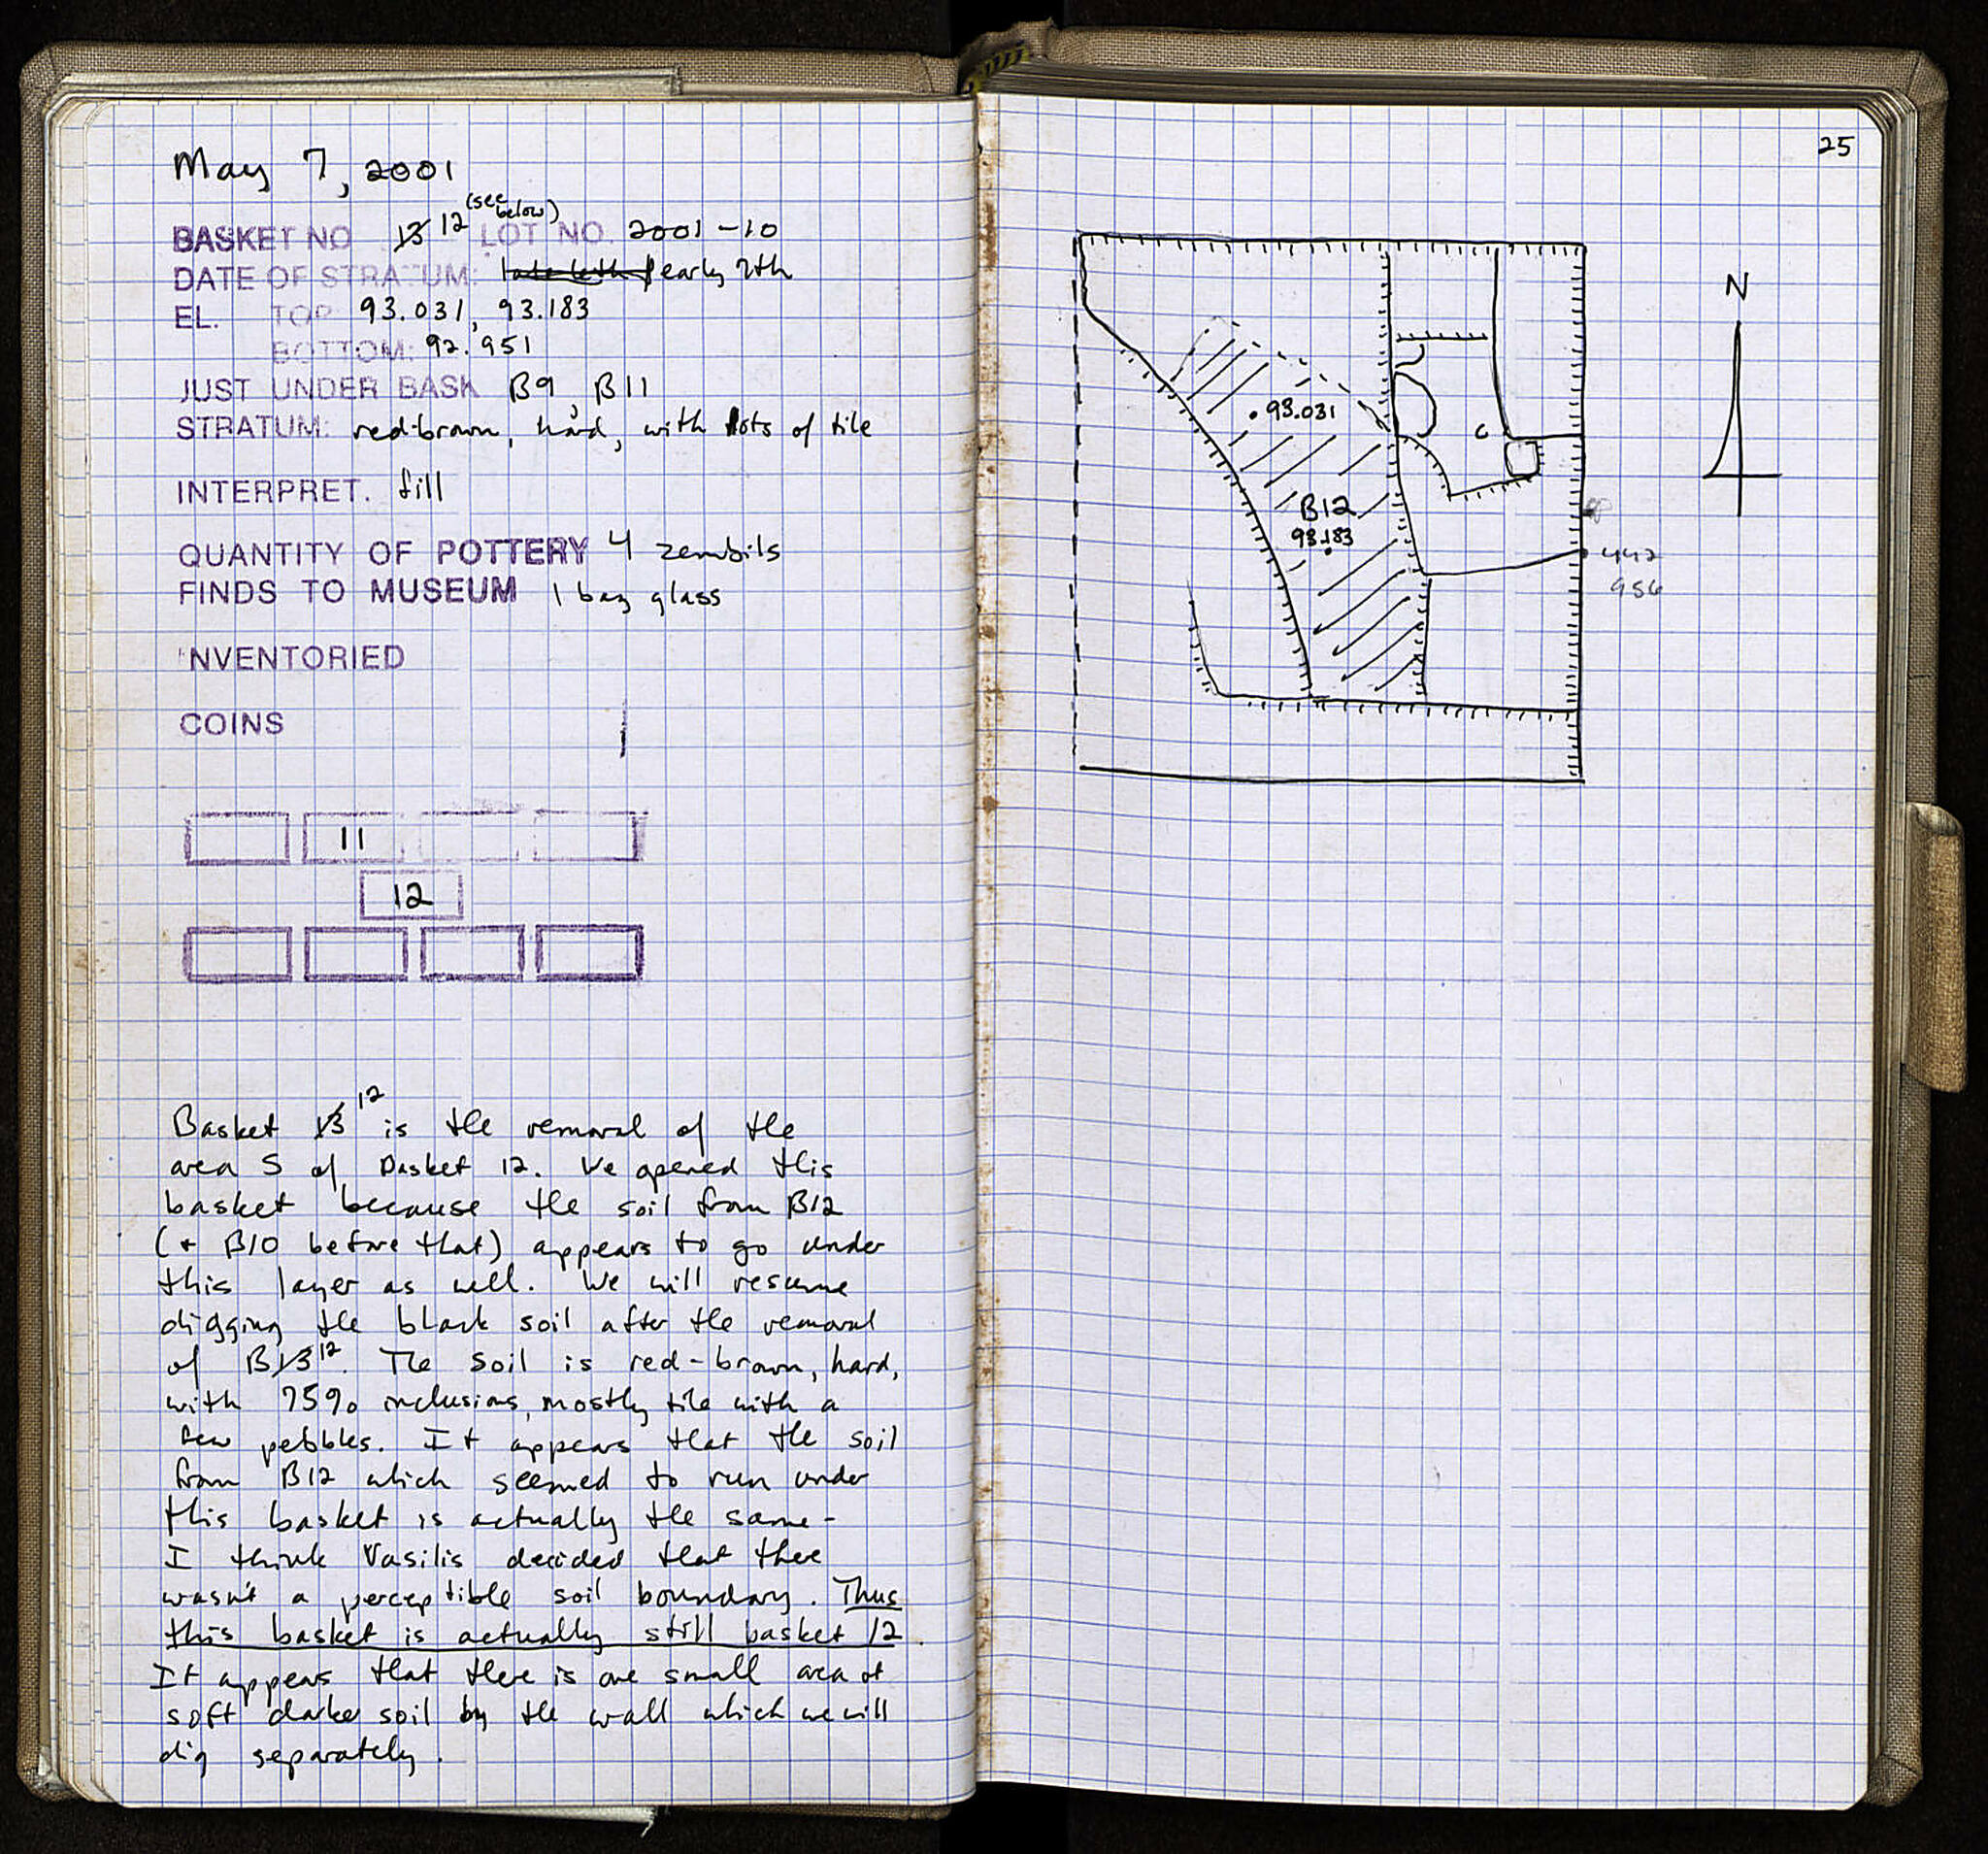 May 7, 2001
(see below)
BASKET NO 13 12 LOT NO. 2001-10
DATE OF STRATUM: late 6th / early 7th
EL. TOP 93.031, 93.183
BOTTOM: 92.951
JUST UNDER BASK B9, B11
STRATUM: red-brown, hard, with lots of tile
INTERPRET. fill
QUANTITY OF POTTERY 4 zembils
FINDS TO MUSEUM 1 bag glass
INVENTORIED
COINS
11
12
Basket 13 12 is the removal of the
area S of Basket 12. We opened this
basket because the soil from B12
(+ B10 before that) appears to go under
this layer as well. We will resume
digging the black soil after the removal
of B13 12. The soil is red-brown, hard,
with 75% inclusions, mostly tile with a
few pebbles. It appears that the soil
from B12 which seemed to run under
this basket is actually the same -
I think Vasilis decided that there
wasn't a perceptible soil boundary. Thus
this basket is actually still basket 12.
It appears that there is one small area of
soft darker soil by the wall which we will
dig separately.
25
N
93.031
B12
93.183
442
956